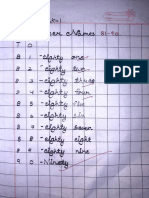 Number Names 81-90
T O
8 1 - Eighty one
8 2 - Eighty two
8 3 - Eighty three
8 4 - Eighty four
8 5 - Eighty five
8 6 - Eighty six
8 7 - Eighty seven
8 8 - Eighty eight
8 9 - Eighty nine
9 0 - Ninety